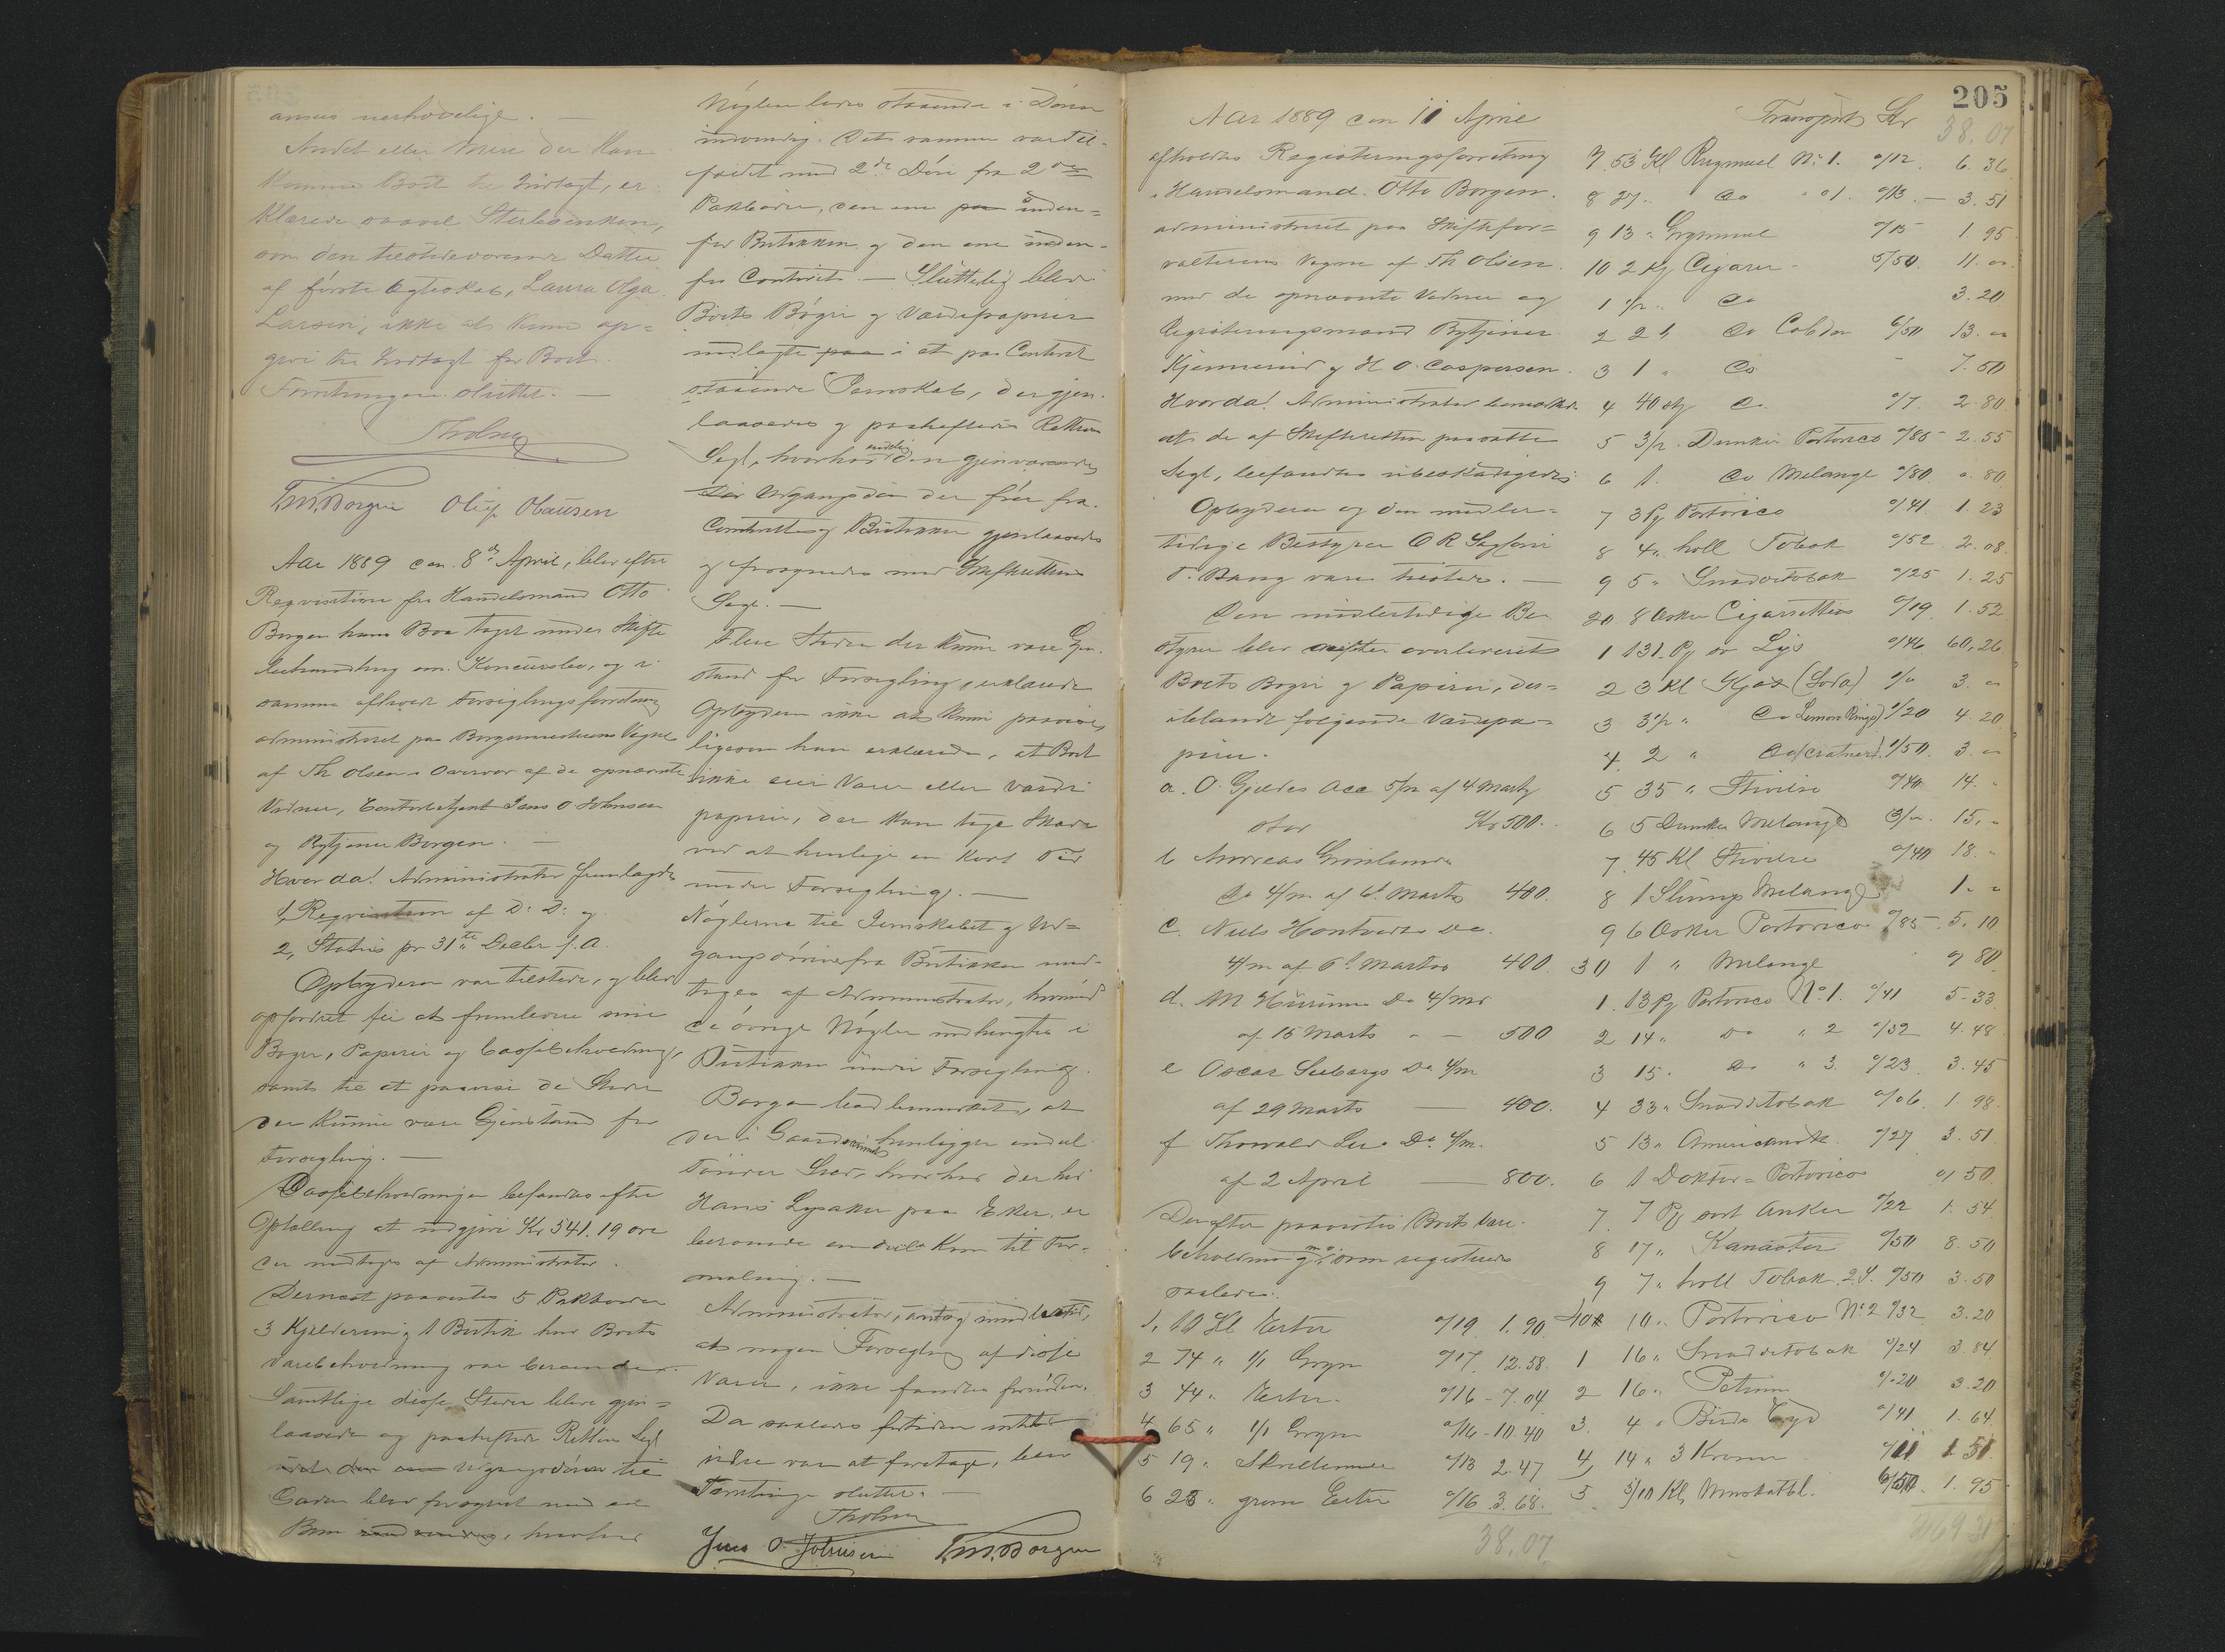 ansees nerhødelige. —
Andet eller Mere der kan
komme Boet til Indtægt, er
klærede saavel Sterboenken,
som den tilstedeværende Datter
af første Ægteskab, Laura Olga
Larsen, ikke at kunne op=
give til Indtægt for Boet.
Forretningen sluttet. —
Tholsen
T.M.Borgen Oluf Olaussen
Aar 1889 den 8de April, blev efter
Reqvisition fra Handelsmand Otto
Borgen hans Bo taget under Skifte
behandling som Konkursbo, og i
samme afholdt Forseglingsforretning
administreret paa Borgermesterens Vegne
af Th Olsen i Overvær af de opnævnte
Vidner, Contorbetjent Jens O Johnsen
og Bytjener Borgen. —
Hvorda! Administrator fremlagde
1, Reqvisition af D. D. og
2, Status pr 31te Decbr f. A.
Opbyderen var tilstede, og blev
opfordret til at fremlevere sine
Bøger, Papirer og Cassebeholdning,
samt til at paavise de Steder
der kunne være Gjenstand for
Forsegling. —
Cassebeholdningen befandtes efter
Optælling at udgjøre Kr 541.19 øre
der modtoges af Administrator.
Dernæst paavistes 5 Pakboder
3 Kjelderrum og 1 Butik hvor Boets
Varebeholdning var beroende.
Samtlige disse Steder bleve gjen=
laasede og paaheftede Rettens Segl
Udgangsdøren til
Gaden blev forsynet med en
Bom indvendig, hvorhos
Nøglen lodes staaende i Døren
indvendig. Det samme var til=
fældet med 2de Døre fra 2de
Pakboder, den ene paa inden=
for Butikken og den ene inden=
for Contoret. — Sluttelig bleve
Boets Bøger og Værdipapirer
nedlagte paa i et paa Contoret
staaende Jernskab, der gjen=
laasedes og paaheftedes Rettens
Segl, hvorhos endelig den gjenværende
Dør Udgangsdør der fører fra
Contoret og Butikken gjenlaasedes
og forsynedes med Skifterettens
Segl. —
Flere Steder der kunne være Gjen=
stand for Forsegling, erklærede
Opbyderen ikke at kunne paavise,
ligesom han erklærede, at Boet
ikke eier Varer eller Værdi
papirer, der kan tage Skade
ved at henligge en kort Tid
under Forsegling. —
Nøglerne til Jernskabet og Ud=
gangsdøren fra Butikken mod=
toges af Administrator, hvorimod
de øvrige Nøgler indhengtes i
Butikken under Forsegling.
Borgen lod bemærket, at
der i Gaardsrummet henligger endel
Tønder Sæd, hvorhos der hos
Hans Lysaker paa Eker, er
beroende en deel Korn til For=
maling. —
Administrator, antog imidlertid,
at nogen Forsegling af disse
Varer, ikke fandtes fornøden.
Da saaledes fortiden intet
videre var at foretage, blev
Forretningen sluttet. —
Tholsen
Jens O Johnsen T.M.Borgen
205
Aar 1889 den 11 April
afholdtes Registreringsforretning
i Handelsmand Otto Borgen.
administreret paa Skiftefor=
valterens Vegne af Th Olsen.
med de opnævnte Vidner og
Registreringsmænd Bytjener
Kjennerud og H. O. Caspersen.
Hvorda! Administrator bemærkede
at de af Skifteretten paasatte
Segl, befandtes ubeskadigede.
Opbyderen og den midler=
tidige Bestyrer O R Sagfører
T. Bang vare tilstede. —
Den midlertidige Be
styrer blev overleveret
Boets Bøger og Papirer, der=
iblandt følgende Værdipa=
pirer.
a. O. Gjeldes Acc 5/m af 4 Marts
Kr 500.
b Andreas Grønlunds
Do 4/m af 6t Marts 400.
c. Niels Hontvedts Do.
4/m af 6t Marts 400.
d. M Huunes Do 4/md
af 15 Marts - - 500
e Oscar Seebergs Do 4/m
af 29 Marts — 400.
f Thorvald Lie Do 4/m.
af 2 April — 800.
Derefter paavistes Boets Vare
beholdning m. v. som registreredes
saaledes:
1, 10 Kl Erter o/19 1.90
2 74 " 1/1 Gryn o/17 12.58.
3 44 " Erter o/16 - 7.04
4 65 " 1/1 Gryn o/16 - 10.40
5 19 " Skrellemeel o/13 2.47
6 23 " grøne Erter o/16 3.68.
38.07
Transport Kr 38.07
7 53 Kl Rugmeel No 1. o/12 6.36
8 27 " Do " 01. o/13. — 3.51
9 13 " Grynmeel o/15 1.95
10 2 Kg Cigarer 5/50. 11.00
1 1/2 " Do 3.20
2 2 " Do Cobden 6/50 13.00
3 1 " Do - 7.50
4 40 stk Do. o/7. 2.80
5 3/2. Dunker Portorico o/85 2.55
6 1. Do Melange o/80. 0.80
7 3 Pg Portorico o/41 1.23
8 4 " holl Tobak o/52 2.08
9 5 " Snaddetobak o/25 1.25
20 8 Æsker Cigarrettes o/19 1.52
1 131. Pg sv Lys o/46 60.26
2 3 Kl Kjæx (Soda) 1/0 3.00
3 3 1/2 " Do Lemon Rings) 1/20 4.20
4 2 " Do (cratnert) 1/50. 3.00
5 35 " Stivelse o/40 14. "
6 5 Dunker Melange 3/00. 15. "
7 45 Kl Stivelse o/40 18. "
8 1 Slump Melange 1. "
9 6 Æsker Portorico o/85 5.10
30 1 " Melange 0 80
1. 13 Pg Portorico No 1. o/41 5.33
2 14 " Do " 2 o/32 4.48
3 15. Do " 3. o/23 3.45
4 33 " Snaddetobak o/06 1.98
5 13 " Americansk o/27 3.51
6 1 Doktor = Portorico 0/50
7. 7 Pg sort Anker o/22 1.54
8 17 " Kanaster o/50 8.50
9 7 " holl Tobak 2 S. o/50 3.50
40 10 " Portorico No 2 o/32 3.20
1 16 " Snaddetobak o/24 3.84
2 16 " Petum o/20 3.20
3. 4 " Birds Eye o/41 1.64
4, 14 " 3 Kroner o/11 1 51
5 3/10 Kl Muskatbl. 6/50 1.95